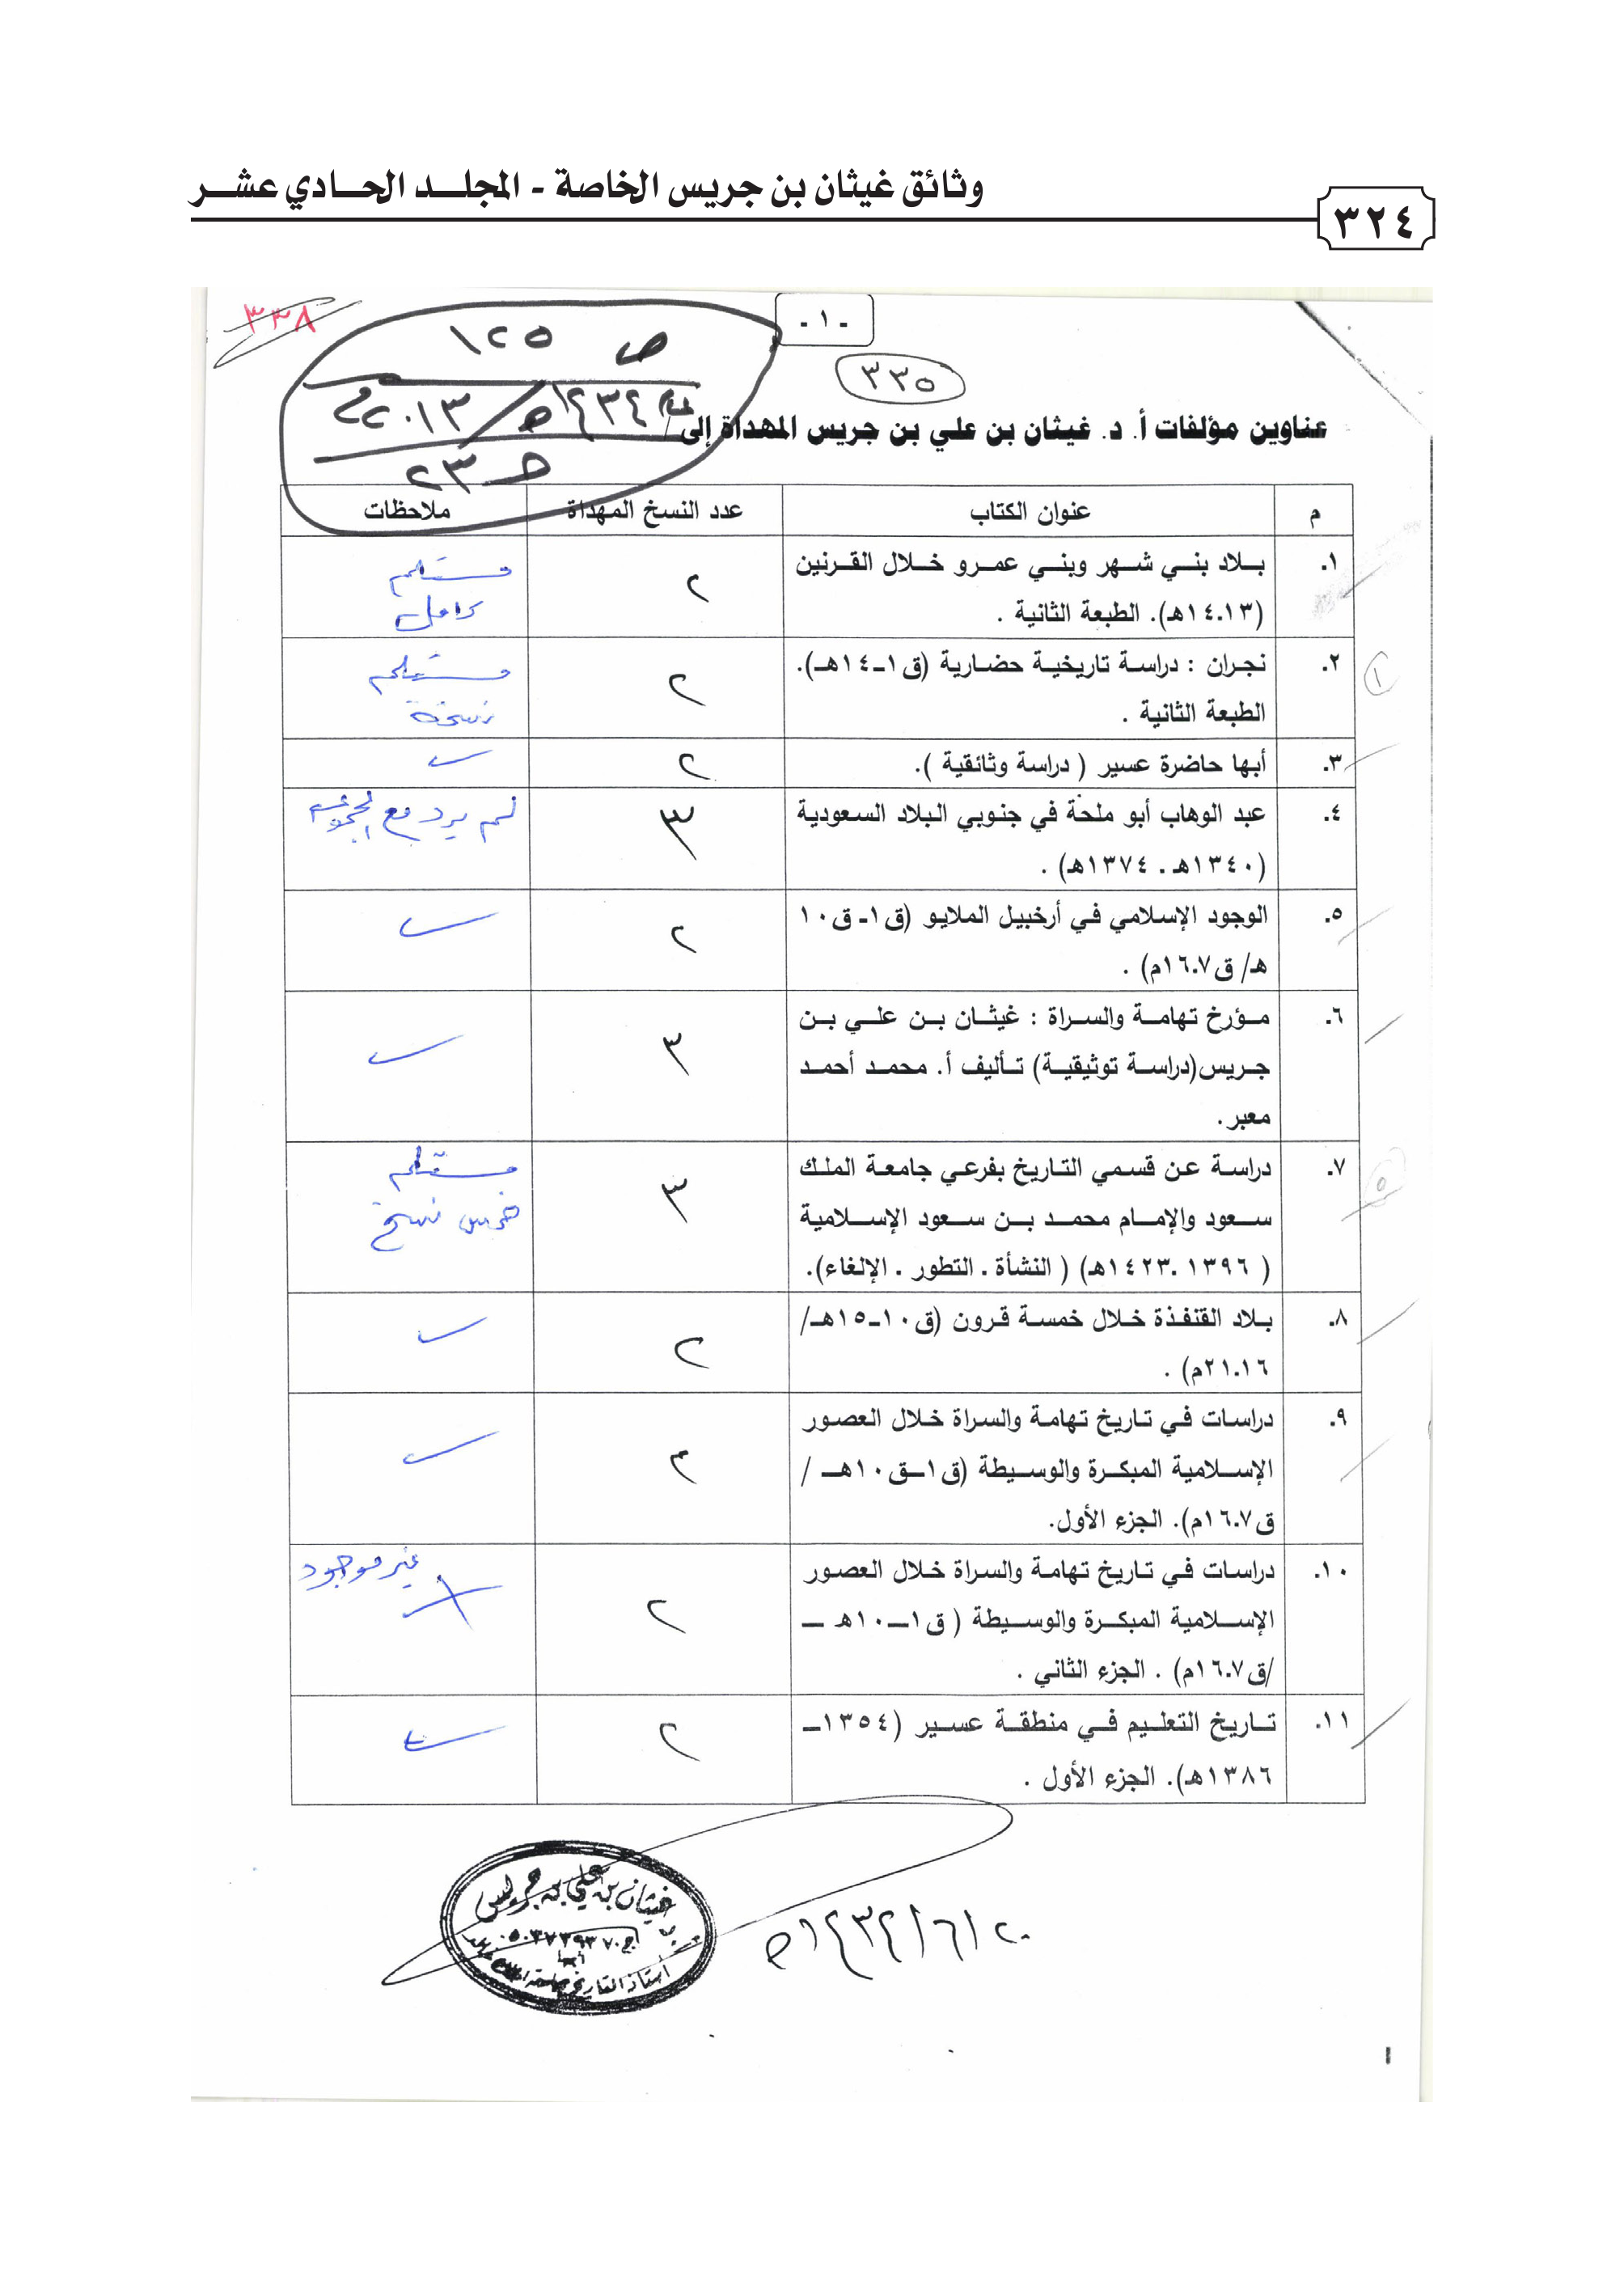 وثائق غيثان بن جريس الخاصة - المجلد الحادي عشر
٣٢٤
٣٣٨
- ١ -
ص ١٢٥
عام ١٤٣٤هـ/٢٠١٣م
حـ ٢٣
٣٣٥
عناوين مؤلفات أ. د. غيثان بن علي بن جريس المهداة إلى /
م عنوان الكتاب عدد النسخ المهداة ملاحظات
١. بلاد بني شهر وبني عمرو خلال القرنين ٢ مستلم
(١٤.١٣هـ). الطبعة الثانية . كامل
٢. نجران : دراسة تاريخية حضارية (ق١-١٤هـ). ٢ مستلم
الطبعة الثانية . نسخة
١
٣. أبها حاضرة عسير ( دراسة وثائقية ). ٢
٤. عبد الوهاب أبو ملحة في جنوبي البلاد السعودية ٣ لم يرد مع المجموعة
(١٣٤٠هـ . ١٣٧٤هـ) .
٥. الوجود الإسلامي في أرخبيل الملايو (ق١- ق١٠ ٢
هـ/ ق١٦.٧م) .
٦. مؤرخ تهامة والسراة : غيثان بن علي بن ٣
جريس(دراسة توثيقية) تأليف أ. محمد أحمد
معبر.
٧. دراسة عن قسمي التاريخ بفرعي جامعة الملك ٣ مستلم
سعود والإمام محمد بن سعود الإسلامية خمس نسخ
( ١٣٩٦ .١٤٢٣هـ) ( النشأة . التطور . الإلغاء).
٥
٨. بلاد القنفذة خلال خمسة قرون (ق١٠-١٥هـ/ ٢
٢١.١٦م) .
٩. دراسات في تاريخ تهامة والسراة خلال العصور ٢
الإسلامية المبكرة والوسيطة (ق١-ق١٠هـ /
ق١٦.٧م). الجزء الأول.
١٠. دراسات في تاريخ تهامة والسراة خلال العصور ٢ غير موجود
الإسلامية المبكرة والوسيطة ( ق١-١٠هـ -
/ق١٦.٧م) . الجزء الثاني .
١١. تاريخ التعليم في منطقة عسير (١٣٥٤- ٢
١٣٨٦هـ). الجزء الأول .
غيثان بن علي بن جريس
ج/٠٥٠٣٧٣٩٣٧٠
أبها
أستاذ التاريخ بجامعة الملك خالد
٢٠/٦/١٤٣٤هـ
١